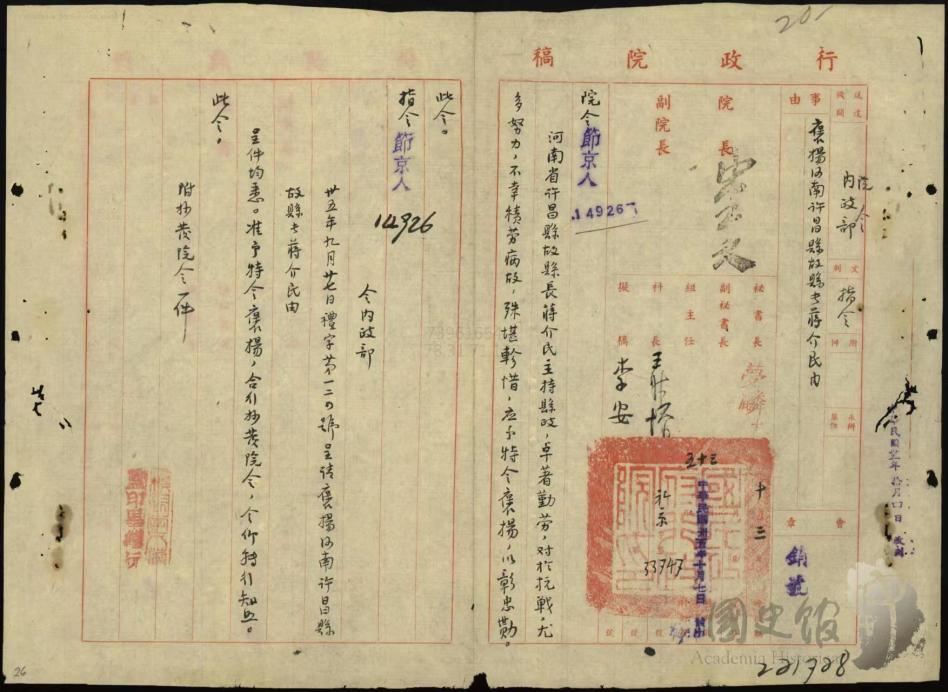 20-
行政院稿
送達機關
院令
內政部
文別
指令
附件
事由
褒揚河南許昌縣故縣長蔣介民由
會章
銷號
院長
副院長
秘書長
副秘書長
組主任
科長
擬稿
李安
中華民國卅五年十月七日
33747
221728
院令
節京人
14926
河南省許昌縣故縣長蔣介民主持縣政，卓著勤勞，對於抗戰，尤
多努力，不幸積勞病故，殊堪軫惜，應予特令褒揚，以彰忠勳。
此令。
指令
節京人
14926
令內政部
卅五年九月廿七日禮字第一二〇號呈請褒揚河南許昌縣
故縣長蔣介民由
呈件均悉。准予特令褒揚，合行抄發院令，令仰轉行知照。
此令。
附抄發院令一件
26
國史館
Academia Historica